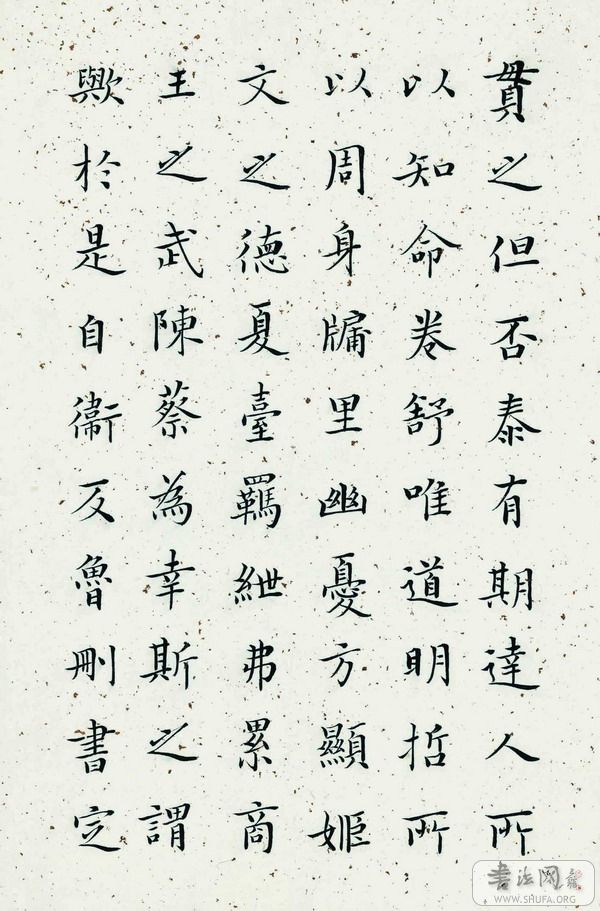 貫之但否泰有期達人所
以知命卷舒唯道明哲所
以周身牖里幽憂方顯姬
文之德夏臺羈紲弗累商
王之武陳蔡為幸斯之謂
歟於是自衞反魯刪書定
書法网
WWW.SHUFA.ORG